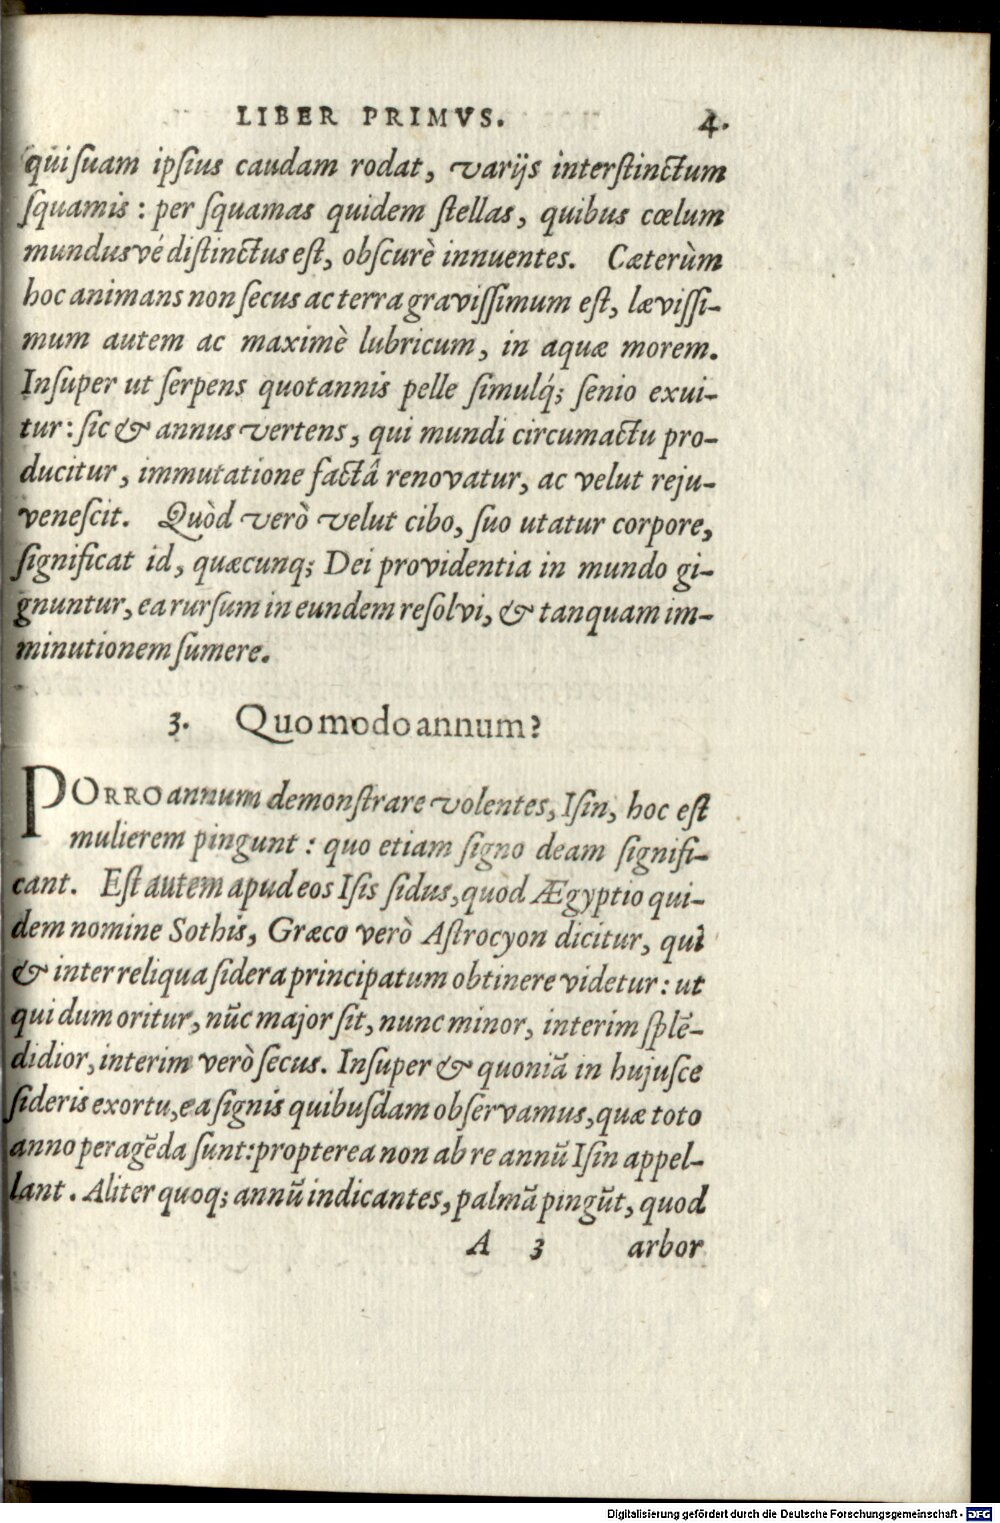 LIBER PRIMVS. 4.
qui suam ipsius caudam rodat, varijs interstinctum
squamis : per squamas quidem stellas, quibus cœlum
mundusvé distinctus est, obscurè innuentes. Cæterùm
hoc animans non secus ac terra gravissimum est, lævissi-
mum autem ac maximè lubricum, in aquæ morem.
Insuper ut serpens quotannis pelle simulq́; senio exui-
tur : sic & annus vertens, qui mundi circumactu pro-
ducitur, immutatione factâ renovatur, ac velut reju-
venescit. Quòd verò velut cibo, suo utatur corpore,
significat id, quæcunq; Dei providentia in mundo gi-
gnuntur, ea rursum in eundem resolvi, & tanquam im-
minutionem sumere.
3. Quomodo annum?
PORRO annum demonstrare volentes, Isin, hoc est
mulierem pingunt : quo etiam signo deam signifi-
cant. Est autem apud eos Isis sidus, quòd Ægyptio qui-
dem nomine Sothis, Græco verò Astrocyon dicitur, quì
& inter reliqua sidera principatum obtinere videtur : ut
qui dum oritur, nũc major sit, nunc minor, interim splẽ-
didior, interim verò secus. Insuper & quoniã in hujusce
sideris exortu, ea signis quibusdam observamus, quæ toto
anno peragẽda sunt : propterea non ab re annũ Isin appel-
lant. Aliter quoq; annũ indicantes, palmã pingũt, quod
A 3 arbor
Digitalisierung gefördert durch die Deutsche Forschungsgemeinschaft - DFG